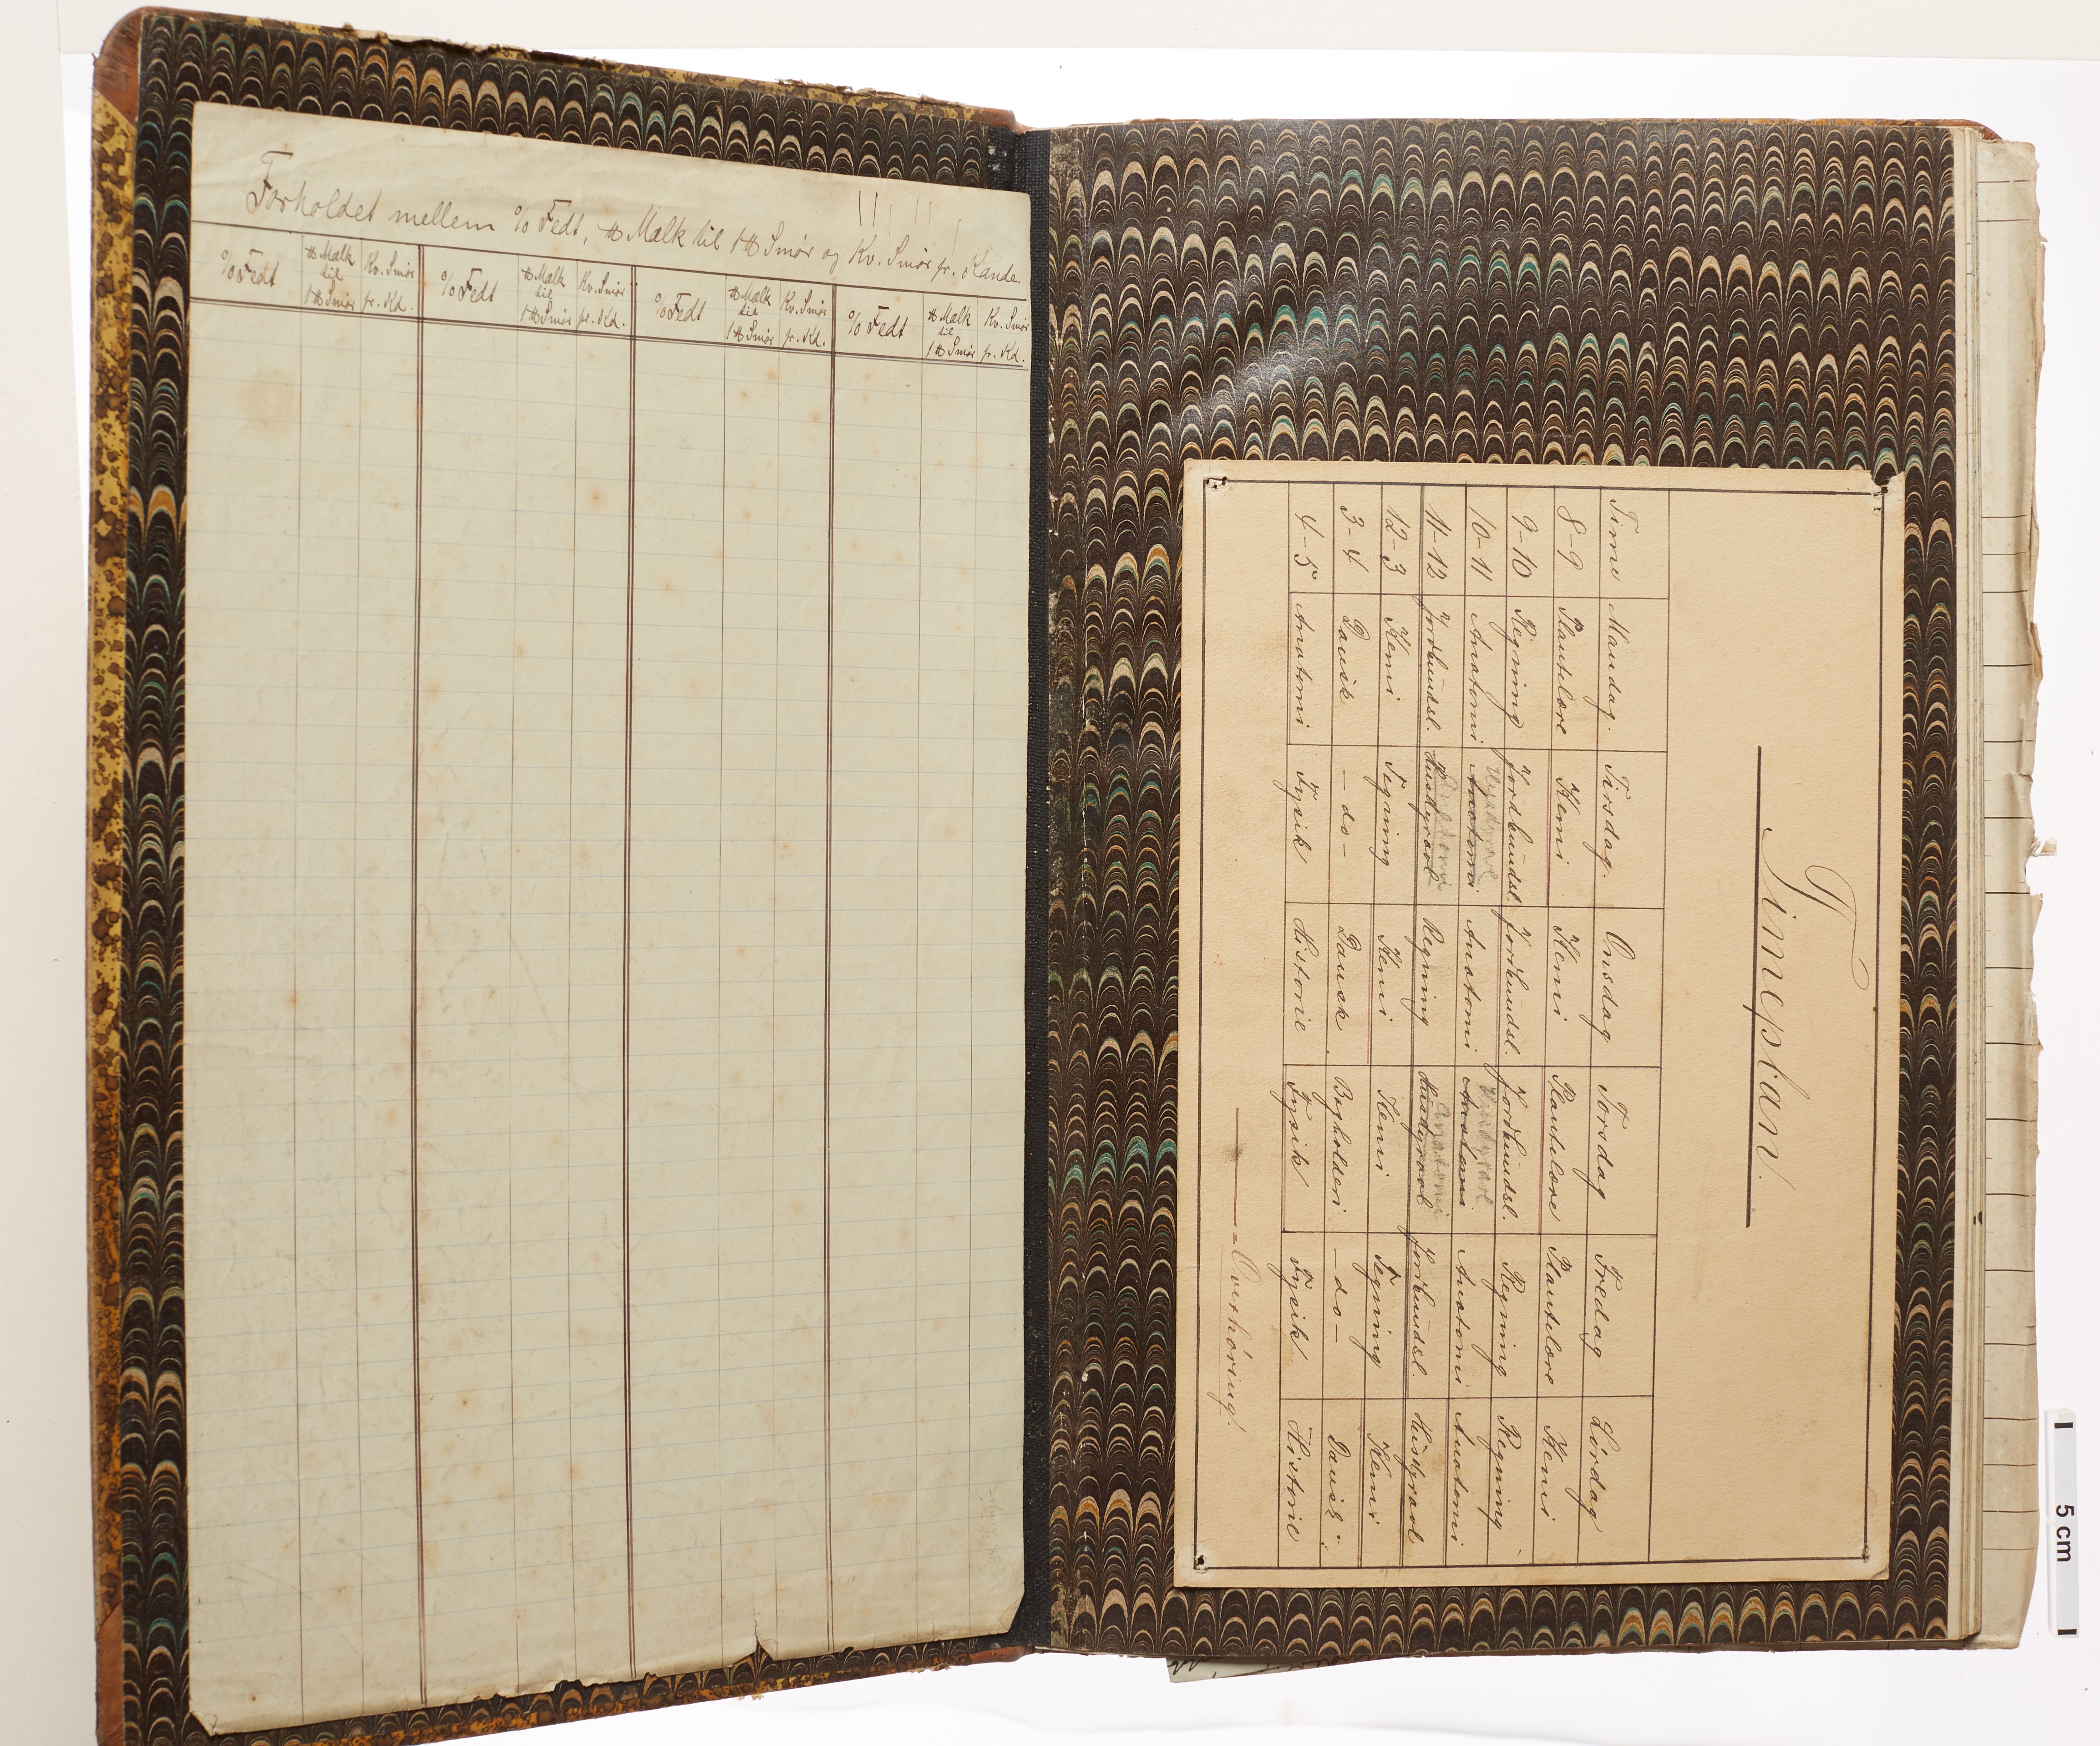 Forholdet mellem % Fedt, ℔ Mælk til 1 ℔ Smør og Kv. Smør pr. Kande.
% Fedt | ℔ Mælk til 1 ℔ Smør | Kv. Smør pr. Kd. | % Fedt | ℔ Mælk til 1 ℔ Smør | Kv. Smør pr. Kd. | % Fedt | ℔ Mælk til 1 ℔ Smør | Kv. Smør pr. Kd. | % Fedt | ℔ Mælk til 1 ℔ Smør | Kv. Smør pr. Kd.
Timeplan.
Time | Mandag. | Tirsdag. | Onsdag | Torsdag | Fredag | Lørdag
8-9 | Plantelære | Kemi | Kemi | Plantelære | Plantelære | Kemi
9-10 | Regning | Jordbundsl. | Jordbundsl. | Jordbundsl. | Regning | Regning
10-11 | Anatomi | Anatomi Husdyravl | Anatomi | Anatomi Husdyravl | Anatomi | Anatomi
11-12 | Jordbundsl. | Husdyravl | Regning | Husdyravl Anatomi | Jordbundsl. | Husdyravl
12-3 | Kemi | Tegning | Kemi | Kemi | Tegning | Kemi
3-4 | Dansk | - do - | Dansk | Bogholderi | - do - | Dansk
4-5 | Anatomi | Fysik | Historie | Fysik | Fysik | Historie
—— = Overhøring.
5 cm